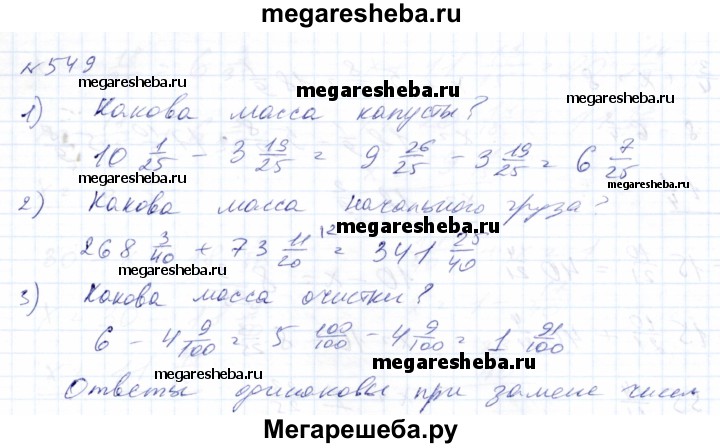 megaresheba.ru
№549
megaresheba.ru megaresheba.ru megaresheba.ru
1) Какова масса капусты?
10 1/25 - 3 19/25 = 9 26/25 - 3 19/25 = 6 7/25
megaresheba.ru
2) Какова масса начального груза?
megaresheba.ru
268 3/40 + 73 11/20 ^12 = 341 25/40
megaresheba.ru
3) Какова масса очистки?
6 - 4 9/100 = 5 100/100 - 4 9/100 = 1 91/100
megaresheba.ru megaresheba.ru
Ответы одинаковы при замене чисел
megaresheba.ru
Мегарешеба.ру